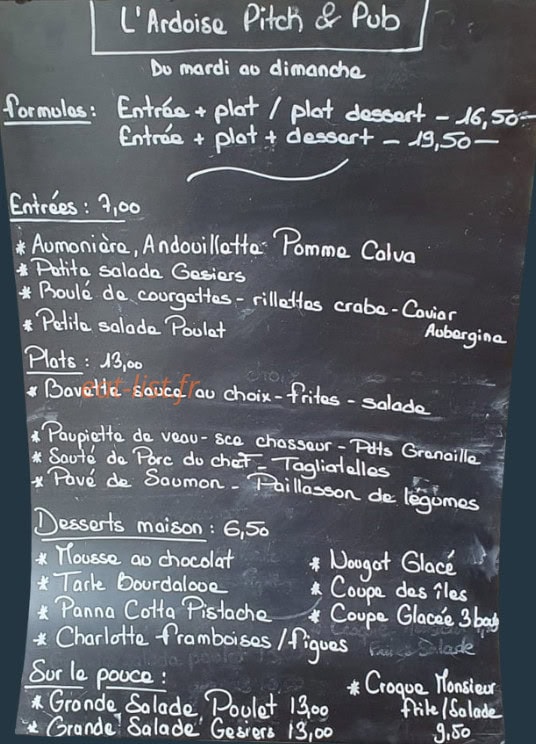 L'Ardoise Pitch & Pub
Du mardi au dimanche
Formules : Entrée + plat / plat dessert - 16,50-
Entrée + plat + dessert - 19,50-
Entrées : 7,00
* Aumonière, Andouillette Pomme Calva
* Petite salade Gesiers
* Roulé de courgettes - rillettes crabe - Caviar
Aubergine
* Petite salade Poulet
Plats : 13,00
eat-list.fr
* Bavette sauce au choix - frites - salade
* Paupiette de veau - sce chasseur - Ptts Grenaille
* Sauté de Porc du chef - Tagliatelles
* Pavé de Saumon - Paillasson de légumes
Desserts maison : 6,50
* Mousse au chocolat
* Tarte Bourdaloue
* Panna Cotta Pistache
* Charlotte framboises / figues
* Nougat Glacé
* Coupe des îles
* Coupe Glacée 3 
Sur le pouce :
* Grande Salade Poulet 13,00
* Grande Salade Gesiers 13,00
* Croque Monsieur
frite/Salade
9,50